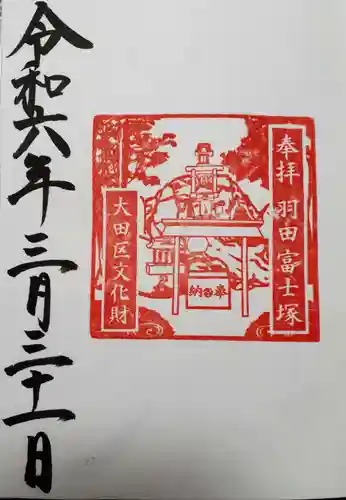 奉拝 羽田富士塚
大田区文化財
奉納
令和六年三月三十一日